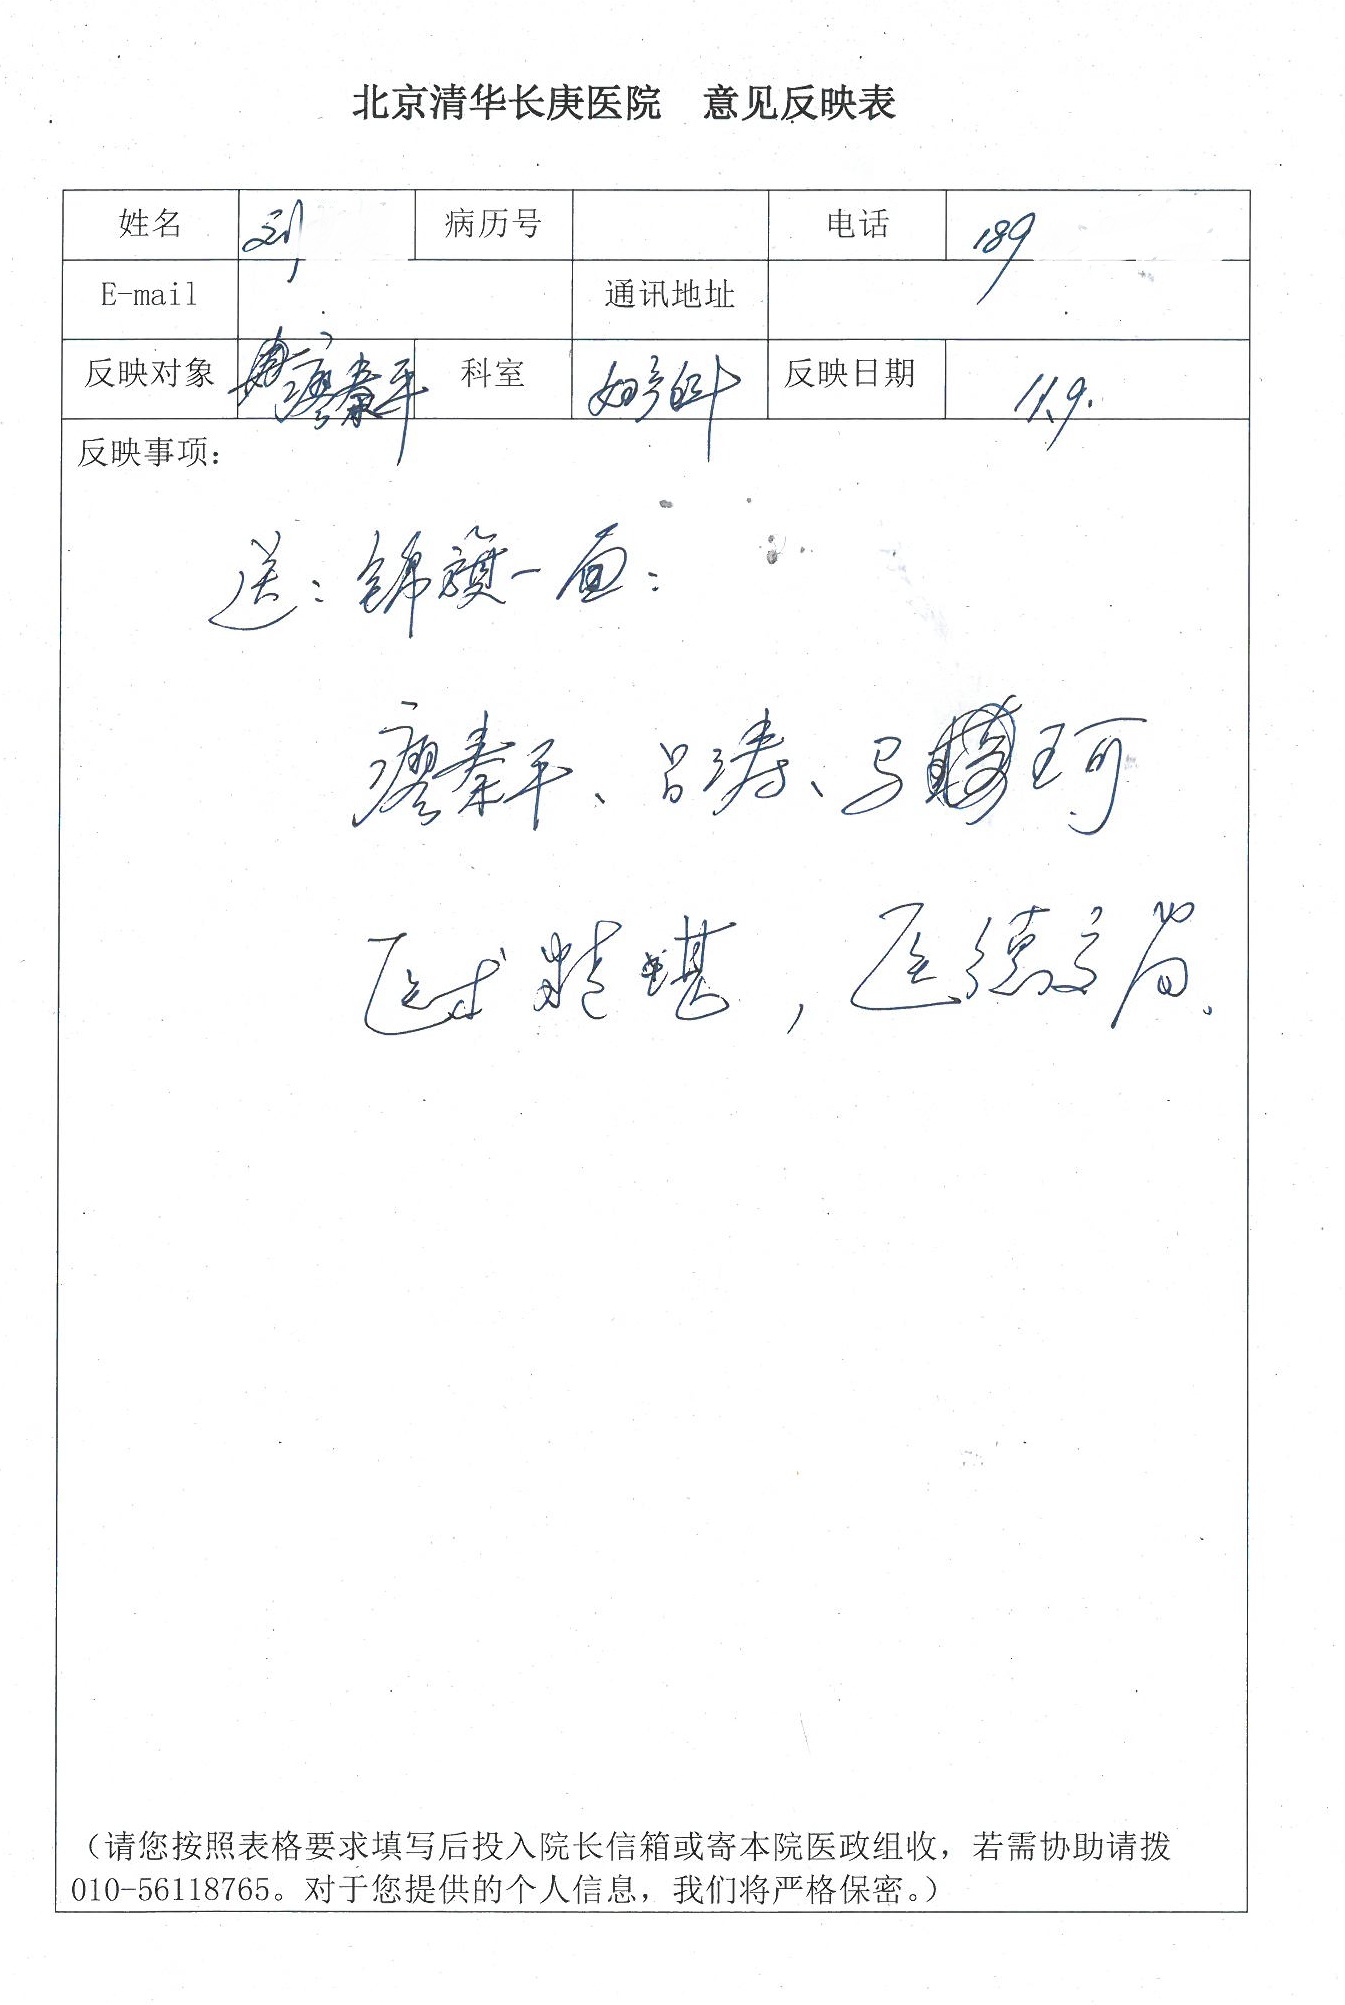 北京清华长庚医院 意见反映表
姓名 刘 病历号 电话 189
E-mail 通讯地址
反映对象 廖秦平 科室 妇产科 反映日期 11.9.
反映事项：
送：锦旗一面：
廖秦平、吕涛、马 王可
医术精堪，医德高尚。
（请您按照表格要求填写后投入院长信箱或寄本院医政组收，若需协助请拨
010-56118765。对于您提供的个人信息，我们将严格保密。）